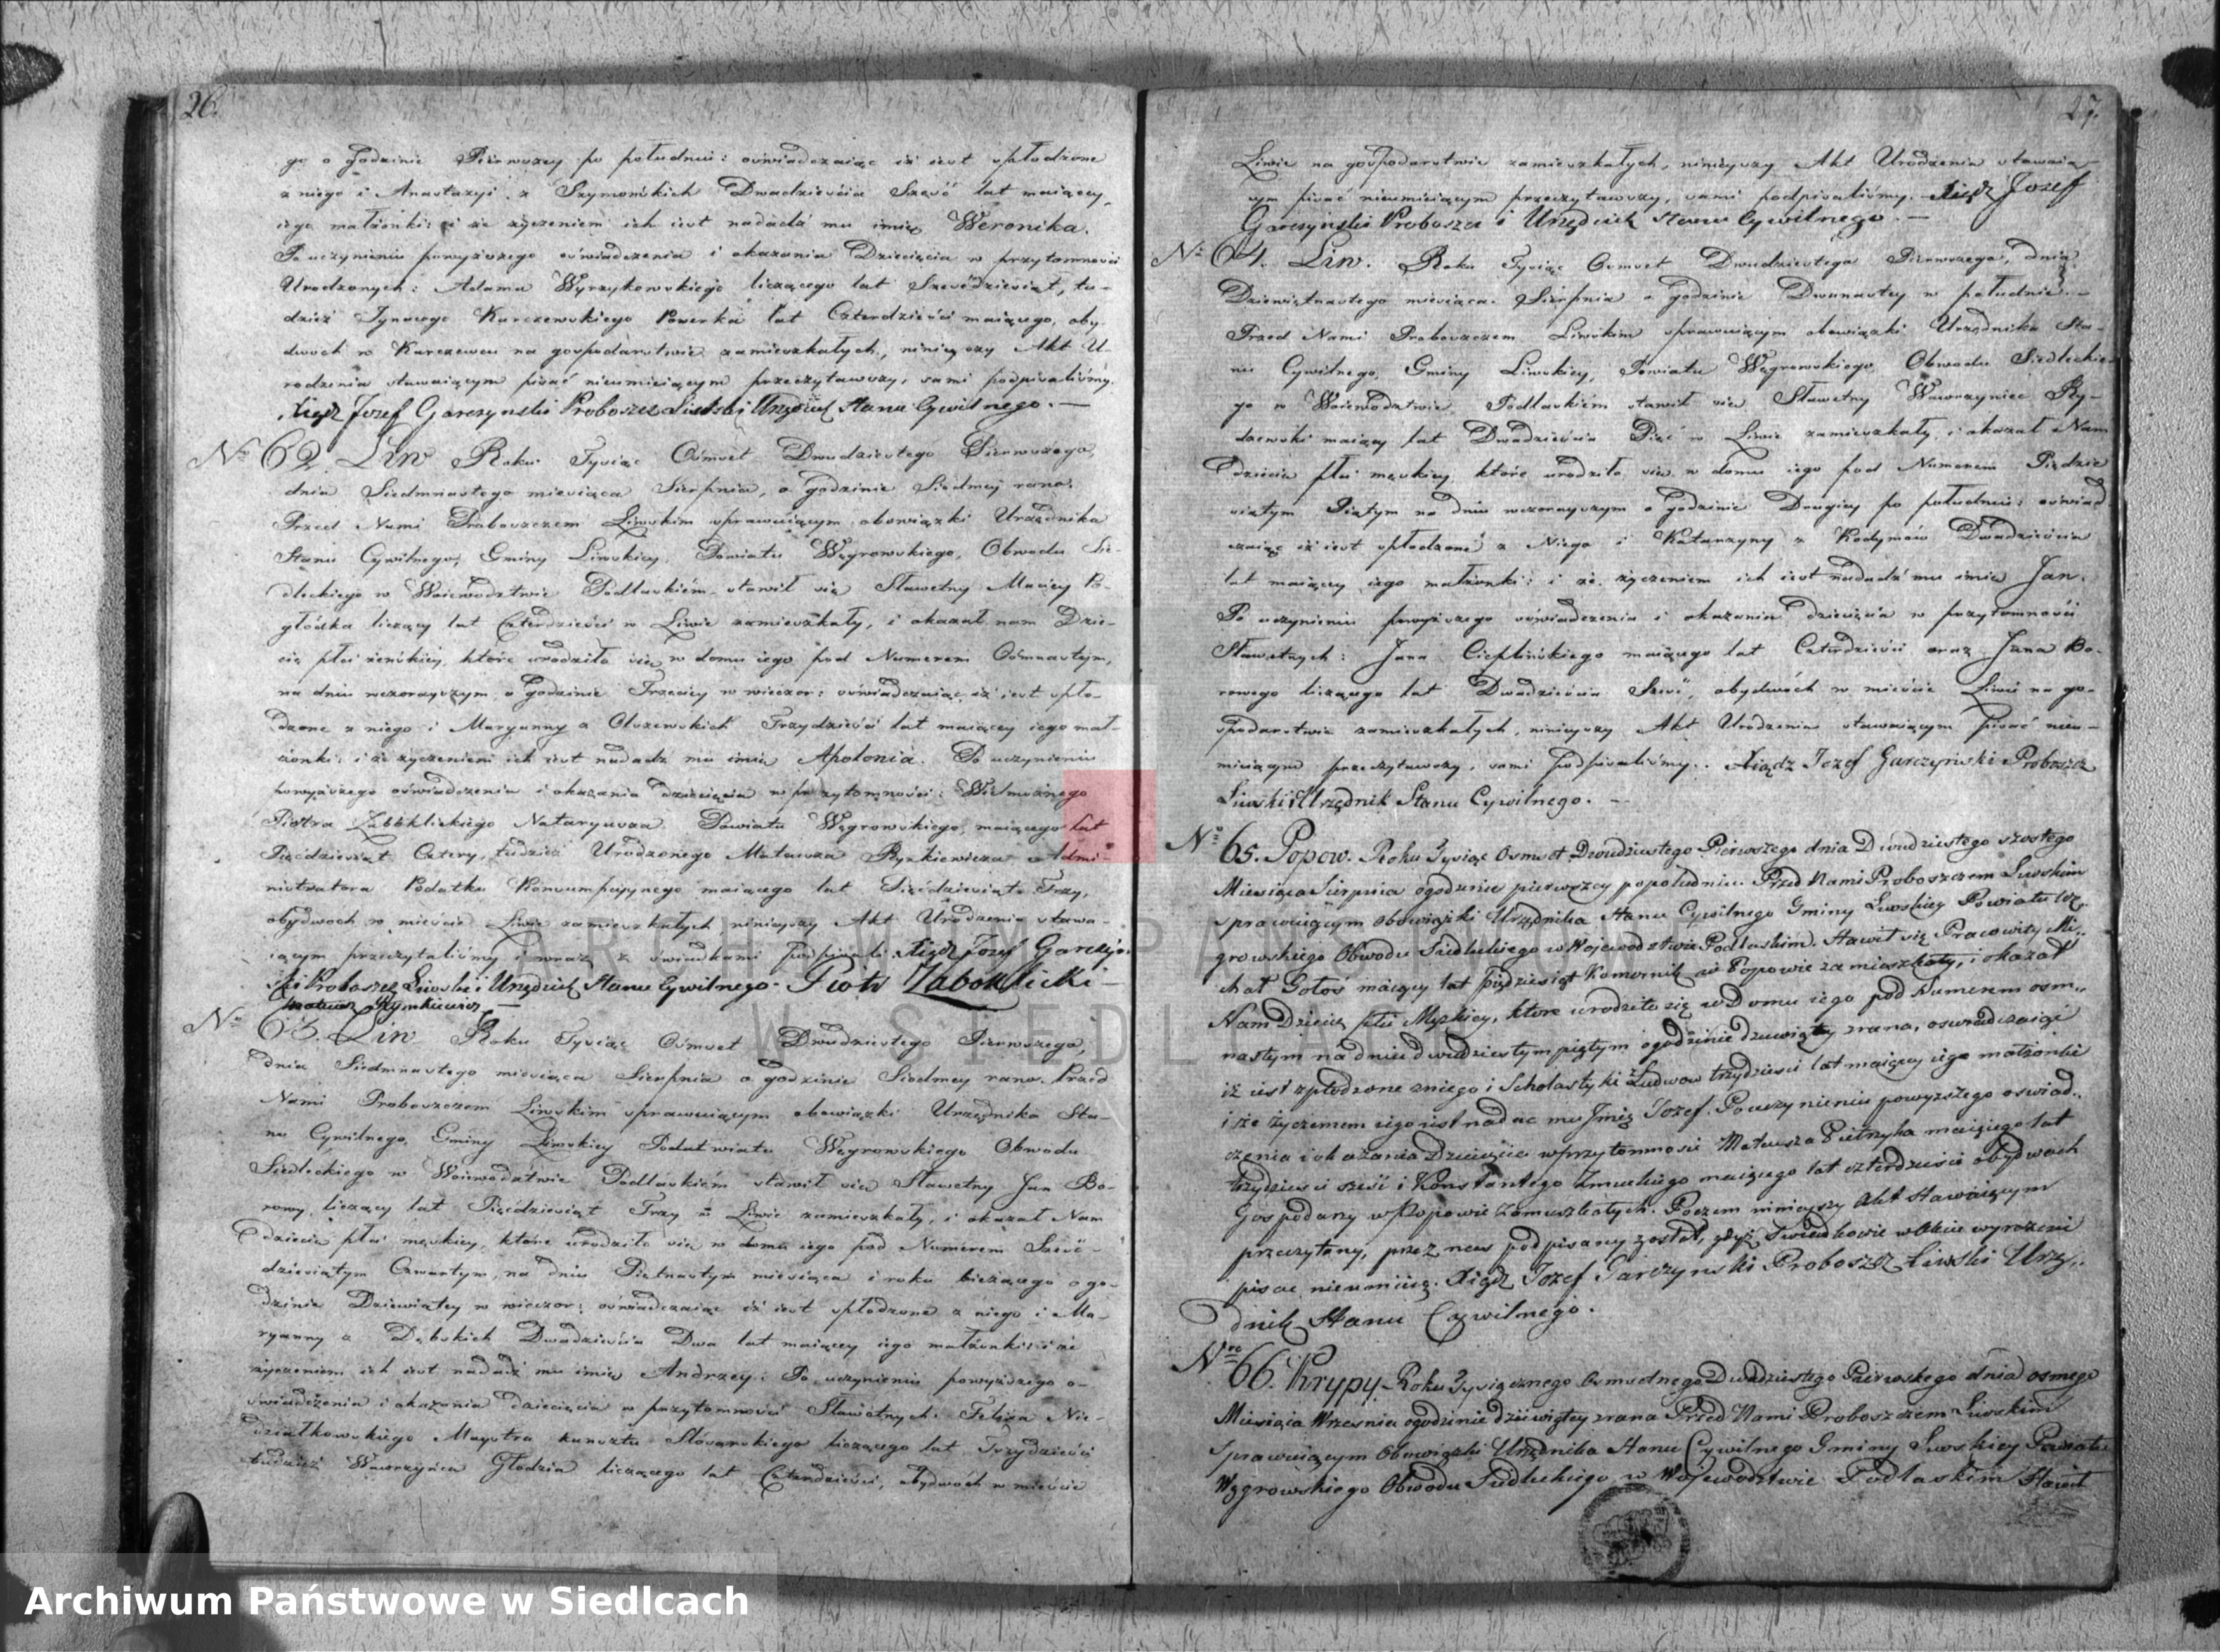 26.
go o godzinie Pierwszey po południu: oświadczaiąc iż iest spłodzone
z niego i Anastazyi z Szymońskich Dwadzieścia Sześć lat maiącey,
iego małżonki: i że życzeniem ich iest nadadź mu imię Weronika.
Po uczynieniu powyższego oświadczenia i okazania Dziecięcia w przytomności
Urodzonych: Adama Wyrzykowskiego liczącego lat Sześćdziesiąt, tu-
dzież Ignacego Karczewskiego lat Czterdzieści maiącego, oby-
dwóch w Karczewcu na gospodarstwie zamieszkałych, ninieyszy Akt U-
rodzenia stawaiącym pisać nieumieiącym przeczytawszy, sami podpisaliśmy.
Xiądz Jozef Garczynski Proboszcz Liwski Urzędnik Stanu Cywilnego. —
No 62. Liw Roku Tysiąc Ośmset Dwudziestego Pierwszego,
dnia Siedmnastego miesiąca Sierpnia, o godzinie Siodmey rano.
Przed Nami Proboszczem Liwskim sprawuiącym obowiązki Urzędnika
Stanu Cywilnego, Gminy Liwskiey, Powiatu Węgrowskiego, Obwodu Sie-
dleckiego w Woiewodztwie Podlaskiém stawił się Sławetny Maciey Po-
głódka liczący lat Czterdzieści w Liwie zamieszkały, i okazał nam Dzie-
cię płci żeńskiey, które urodziło się w domu iego pod Numerem Ośmnastym,
na dniu wczorayszym o godzinie Trzeciey w wieczor: oświadczaiąc iż iest spło-
dzone z niego i Maryanny z Olszewskich Trzydzieści lat maiącey iego mał-
żonki: i że życzeniem ich iest nadadź mu imię Apolonia. Po uczynieniu
powyższego oświadczenia i okazania dziecięcia w przytomności: Wielmożnego
Piotra Zabokklickiego Notaryusza Powiatu Węgrowskiego, maiącego lat
Pięćdziesiąt Cztery, tudzież Urodzonego Mateusza Rymkiewicza Admi-
nistratora Podatku Konsumpcyynego maiącego lat Pięćdziesiąt Trzy,
obydwoch w mieście Liwie zamieszkałych, ninieyszy Akt Urodzenia stawa-
iącym przeczytaliśmy i wraz z świadkami podpisali Xiądz Jozef Garczyn-
ski Proboszcz Liwski i Urzędnik Stanu Cywilnego - Piotr Zabókklicki —
Mateusz Rymkiewicz —
No 63. Liw Roku Tysiąc Ośmset Dwudziestego Pierwszego,
dnia Siedmnastego miesiąca Sierpnia o godzinie Siodmey rano. Przed
Nami Proboszczem Liwskim sprawuiącym obowiązki Urzędnika Sta-
nu Cywilnego, Gminy Liwskiey Węgrowskiego Obwodu
Siedleckiego w Woiewodztwie Podlaskiém stawił się Sławetny Jan Bo-
rowy, liczący lat Pięćdziesiąt Trzy w Liwie zamieszkały, i okazał Nam
dziecię płci męskiey, które urodziło się w domu iego pod Numerem Sześć-
dziesiątym Czwartym, na dniu Piętnastym miesiąca i roku bieżącego o go-
dzinie Dziewiątey w wieczor; oświadczaiąc iż iest spłodzone z niego i Ma-
ryanny z Dębskich Dwadzieścia Dwa lat maiącey iego małżonki: i że
życzeniem ich iest nadadź mu imię Andrzey: Po uczynieniu powyższego o-
świadczenia i okazania dziecięcia w przytomności Sławetnych: Felixa Nie-
działkowskiego Maystra kunsztu Slósarskiego liczącego lat Trzydzieści
tudzież Wawrzyńca Głodzia liczącego lat Czterdzieści, obydwóch w mieście
27.
Liwie na gospodarstwie zamieszkałych, ninieyszy Akt Urodzenia stawaią-
cym pisać nieumieiącym przeczytawszy, sami podpisaliśmy. Xiądz Jozeff
Garczyński Proboszcz i Urzędnik Stanu Cywilnego. —
No 64. Liw. Roku Tysiąc Ośmset Dwudziestego Pierwszego, dnia
Dziewiętnastego miesiąca Sierpnia o godzinie Dwunastey w południe. —
Przed Nami Proboszczem Liwskim sprawuiącym obowiązki Urzędnika Sta-
nu Cywilnego, Gminy Liwskiey, Powiatu Węgrowskiego, Obwodu Siedleckie-
go w Woiewodztwie Podlaskiém stawił się Sławetny Wawrzyniec Ry-
dzewski maiący lat Dwadzieścia Pięć w Liwie zamieszkały, i okazał Nam
Dziecie płci męskiey, które urodziło się w domu iego pod Numerem Pięćdzie-
siątym Piątym na dniu wczorayszym o godzinie Drugiey po południu: oświad-
czaiąc iż iest spłodzoné z Niego i Katarzyny z Kodymów Dwadzieścia
lat maiącey iego małżonki: i że życzeniem ich iest nadadź mu imię Jan.
Po uczynieniu powyższego oświadczenia i okazania dziecięcia w przytomności
Sławetnych: Jana Cieplińskiego maiącego lat Czterdzieści oraz Jana Bo-
rowego liczącego lat Dwadzieścia Sześć, obydwóch w mieście Liwie na go-
spodarstwie zamieszkałych, ninieyszy Akt Urodzenia stawaiącym pisać nieu-
mieiącym przeczytawszy, sami podpisaliśmy. Xiądz Jozef Garczyński Proboszcz
Liwski i Urzędnik Stanu Cywilnego. —
No 65. Popow. Roku Tysiąc Osmset Dwudziestego Pierwszego dnia Dwudziestego szostego
Miesiąca Sierpnia o godzinie pierwszey po południu. Przed Nami Proboszczem Liwskim
sprawuiącym obowiązki Urzędnika Stanu Cywilnego Gminy Liwskiey Powiatu Wę-
growskiego Obwodu Siedleckiego w Wojewodztwie Podlaskim. Stawił się Pracowity Mi-
chał Gołoś maiący lat pięćdziesiąt Komornik w Popowie zamieszkały, i okazał
Nam Dziecię płci Męzkiey, ktore urodziło się w Domu iego pod Numerem osm-
nastym na dniu dwudziestym piątym o godzinie dziewiątey zrana, oswiadczaiąc
iż iest zpłodzone z niego i Scholastyki Ludwow trzydziesci lat maiącey iego małżonki
i że życzeniem iego iest nadac mu Jmię Jozef. Po uczynieniu powyższego oswiad-
czenia i okazania Dziecięcia w przytomnosci Mateusza Pietrzyka maiącego lat
trzydziesci sześć i Konstantego Zmuckiego maiącego lat czterdziesci obydwoch
Gospodarzy w Popowie zamieszkałych. Poczem ninieyszy Akt stawaiącym
przeczytany, przez nas podpisany został, gdyż Swiadkowie w Akcie wyrażeni
pisac nieumieią. Xiądz Jozef Garczynski Proboszcz Liwski Urzę-
dnik Stanu Cywilnego.
Nro 66. Krypy - Roku Tysiącznego Osmsetnego Dwudziestego Pierwszego dnia osmego
Miesiąca Wrzesnia o godzinie dziewiątey zrana Przed Nami Proboszczem Liwskim
sprawuiącym Obowiązki Urzędnika Stanu Cywilnego Gminy Liwskiey Powiatu
Węgrowskiego Obwodu Siedleckiego w Wojewodztwie Podlaskim Stawił
ARCHIWUM PAŃSTWOWE
W SIEDLCACH
Archiwum Państwowe w Siedlcach